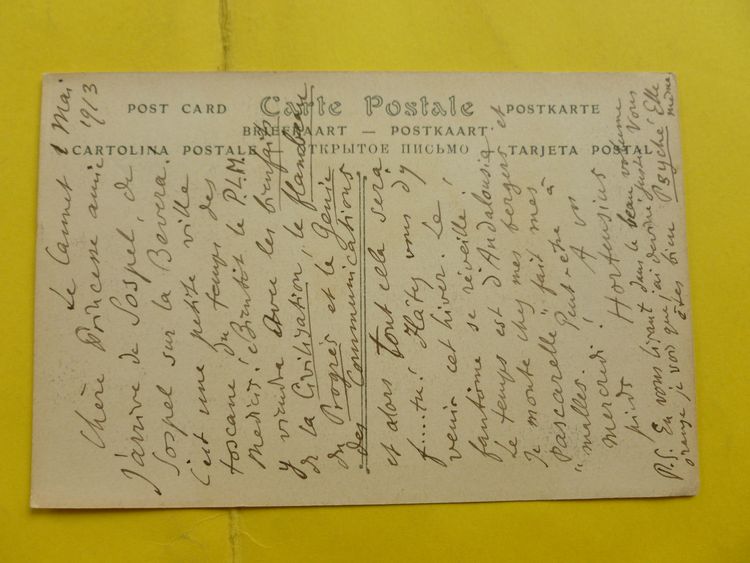 POST CARD Carte Postale POSTKARTE
BRIEFKAART — POSTKAART
CARTOLINA POSTALE — ОТКРЫТОЕ ПИСЬМО — TARJETA POSTAL
Le Cannet 1 Mai
1913
Chère Princesse amie
J'arrive de Sospel, de
Sospel sur la Bevera.
C'est une petite ville
toscane du temps des
Medicis! Bientôt le P.L.M.
y viendra avec les bienfaits
de la Civilisation, le flambeau
du Progrès et le Génie
des Communications
et alors tout cela sera
f.....tu! Hâtez vous d'y
venir cet hiver. Le
fantôme se réveille!
Le temps est d'Andalousie et
Je monte chez mes bergers
"Pascarelle" fait mes
malles. Peut-être à
mercredi! A vos
pieds Hortensius
P.S. En vous lisant dans le beau volume
orange je vois que j'ai deviné juste. Vous
êtes bien Psyché Elle
même